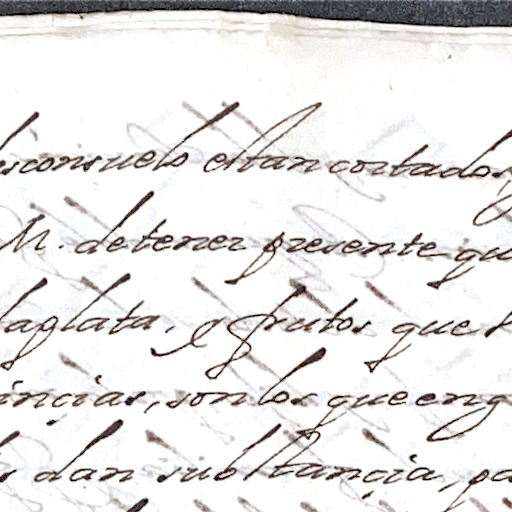 esconsuelo estan cortados,
M. detener presente qu
laplata, y frutos que s
inçias, son los que eng
s dan substançia, pa